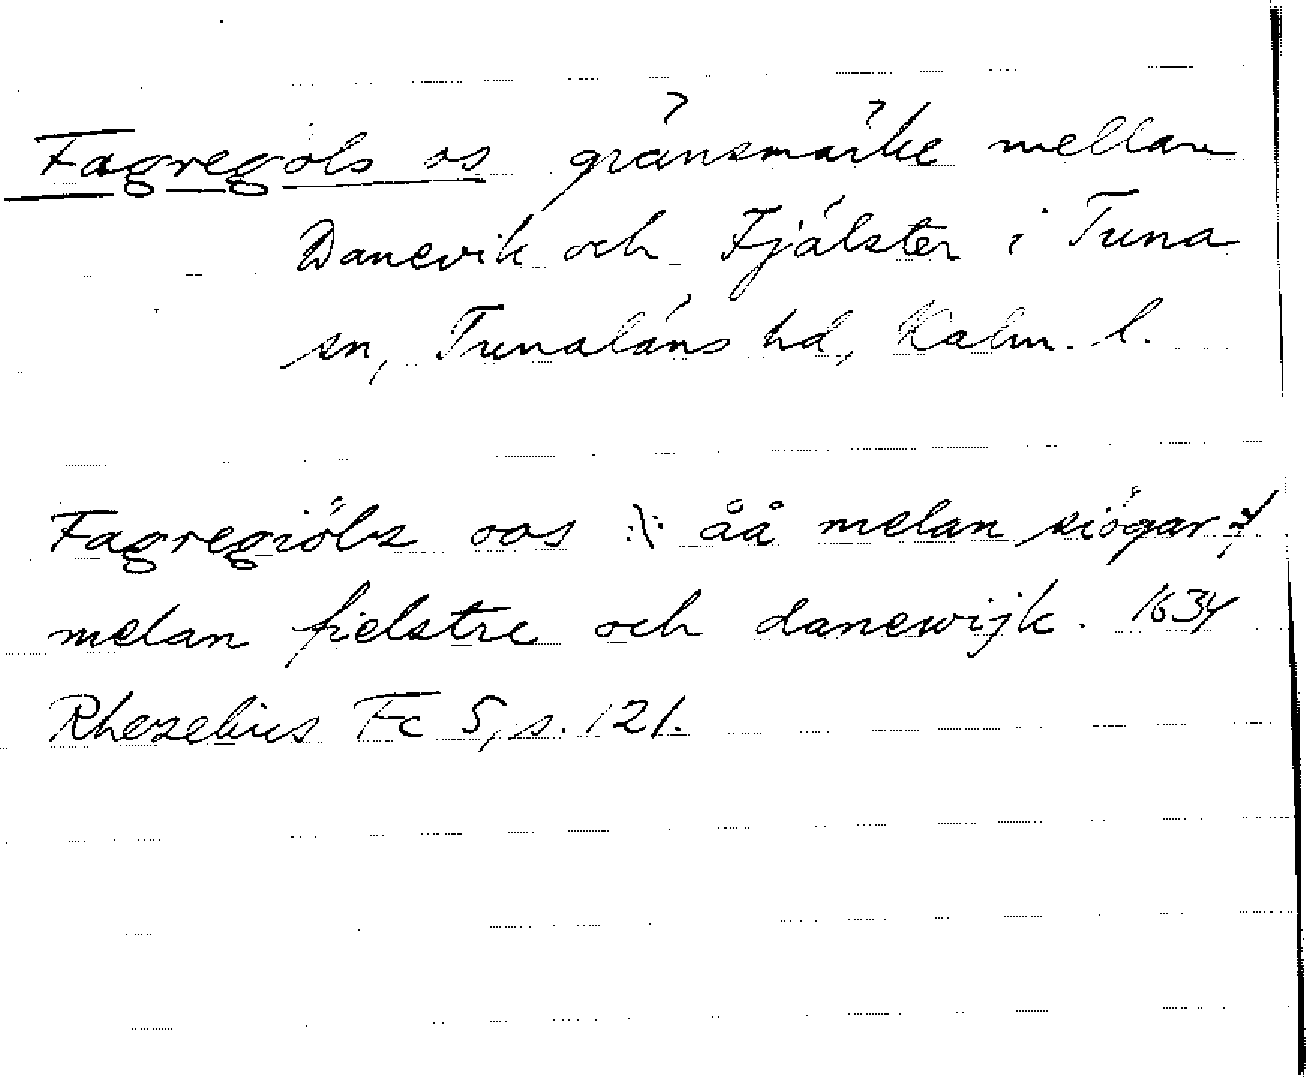 Fagregöls os gränsmärke mellan
Danevik och Fjälster i Tuna
sn, Tunaläns hd, Kalm. l.
Fagregiölz oos :/: åå melan siögar :/
melan fielstre och danewijk. 1634
Rhezelius Fc 5, s. 121.